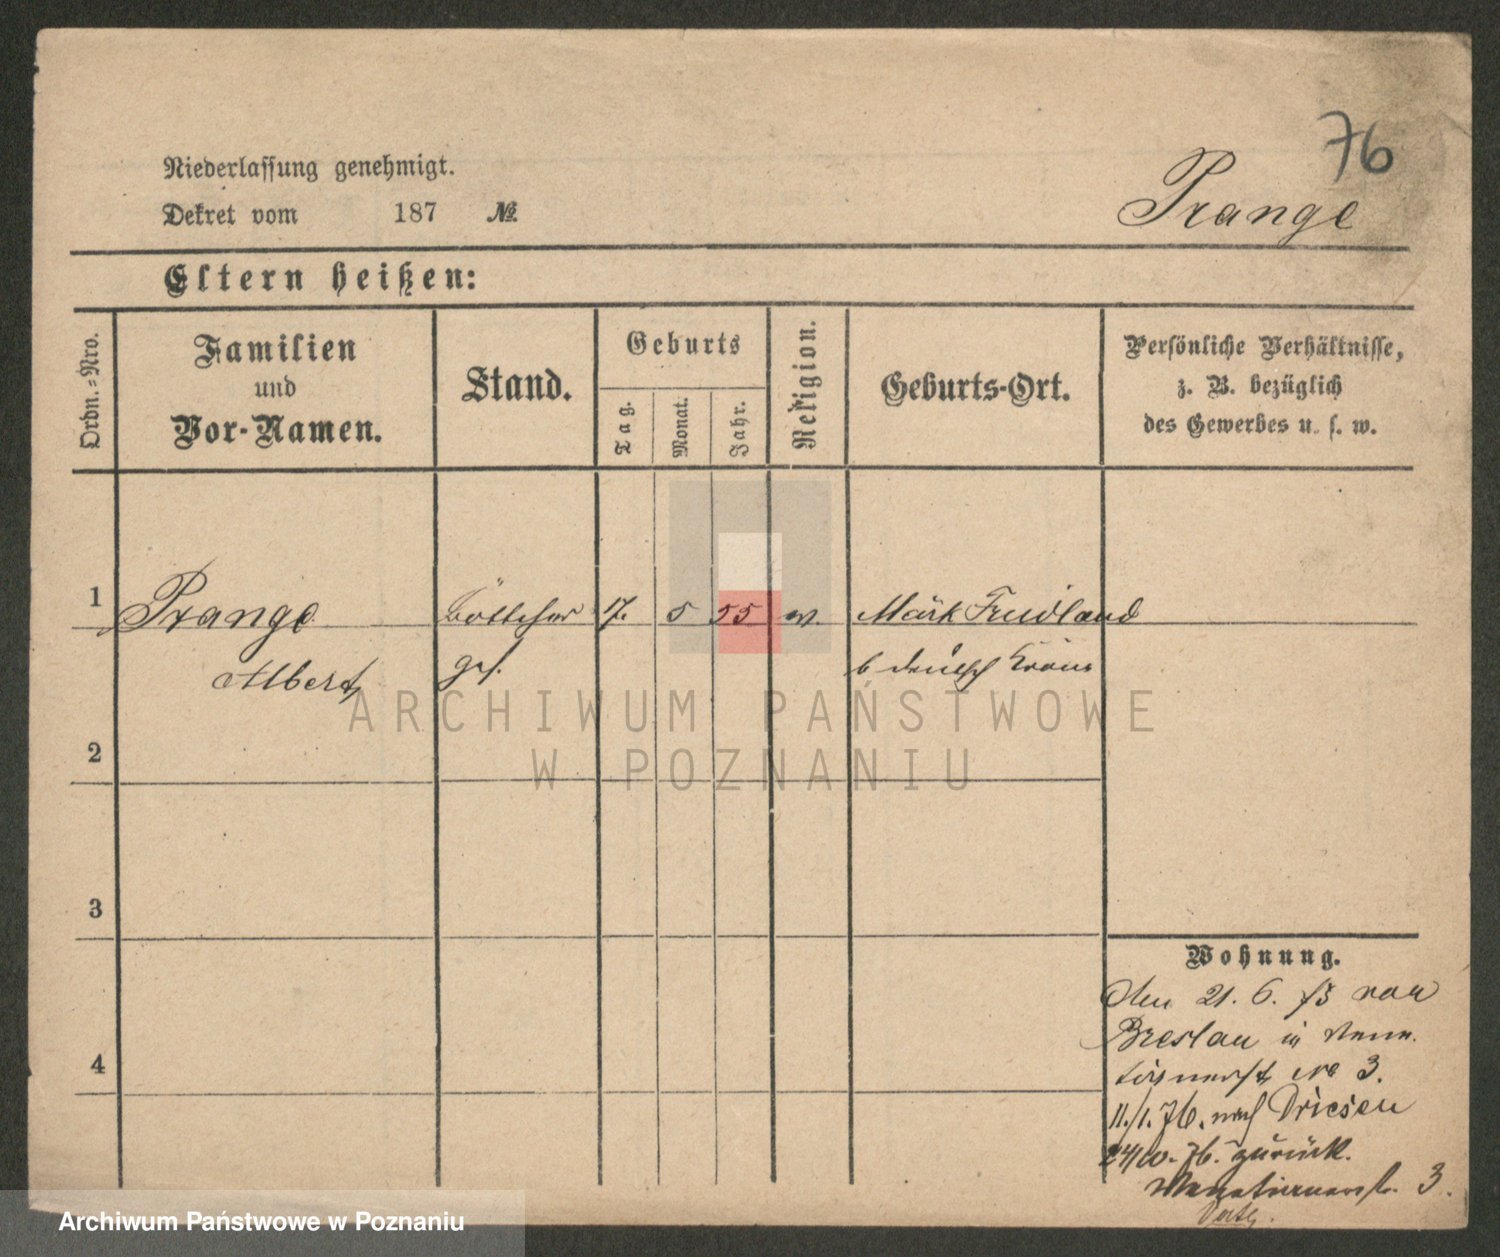 76
Niederlassung genehmigt.
Prange
Dekret vom 187 №
Eltern heißen:
Ordn.=Nro.
Familien
und
Vor-Namen.
Stand.
Geburts
Tag.
Monat.
Jahr.
Religion.
Geburts-Ort.
Persönliche Verhältnisse,
z. B. bezüglich
des Gewerbes u. s. w.
1 Prange Böttcher 17. 5 55 Märk Friedland
Albert ges. b deutsch Krone
ARCHIWUM PAŃSTWOWE
W POZNANIU
2
3
4
Wohnung.
Den 21. 6. 75 von
Breslau in
No 3.
11./1. 76. nach Driesen
24/10. 76. zurück.
3.
Archiwum Państwowe w Poznaniu